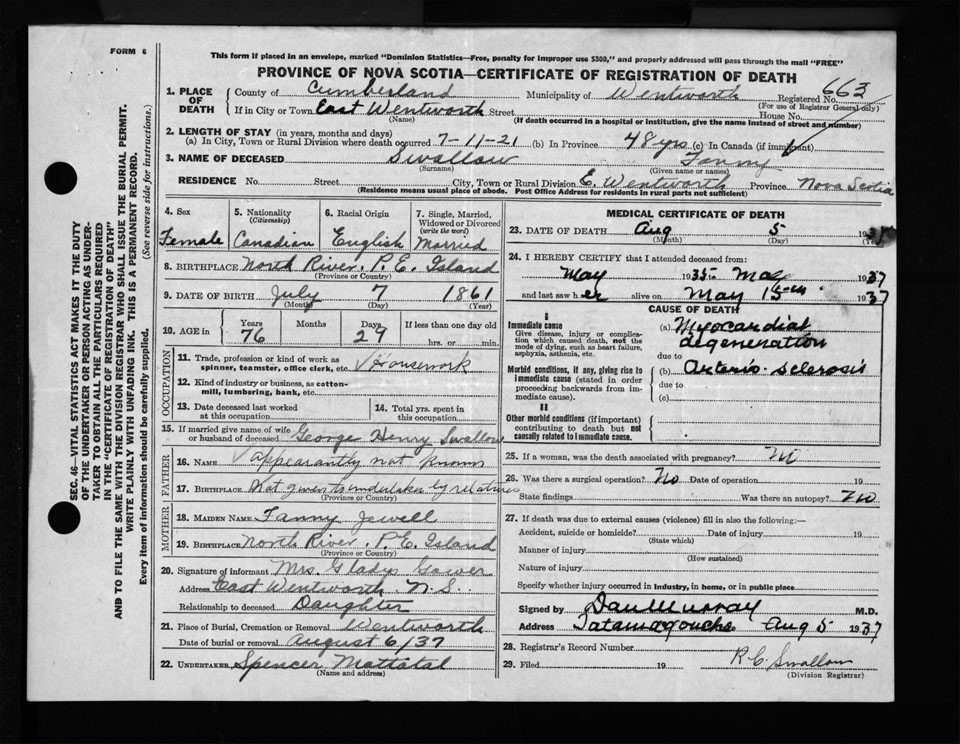 FORM 6
This form if placed in an envelope, marked "Dominion Statistics—Free, penalty for improper use $300," and properly addressed will pass through the mail "FREE"
PROVINCE OF NOVA SCOTIA—CERTIFICATE OF REGISTRATION OF DEATH
1. PLACE OF DEATH
County of Cumberland Municipality of Wentworth Registered No. 663
(For use of Registrar General only)
If in City or Town East Wentworth Street House No.
(Name) (If death occurred in a hospital or institution, give the name instead of street and number)
2. LENGTH OF STAY (in years, months and days)
(a) In City, Town or Rural Division where death occurred 7-11-21 (b) In Province 48 yrs (c) In Canada (if immigrant)
3. NAME OF DECEASED Swallow Fanny
(Surname) (Given name or names)
RESIDENCE No. Street City, Town or Rural Division E. Wentworth Province Nova Scotia
(Residence means usual place of abode. Post Office Address for residents in rural parts not sufficient)
4. Sex
Female
5. Nationality (Citizenship)
Canadian
6. Racial Origin
English
7. Single, Married, Widowed or Divorced (write the word)
Married
8. BIRTHPLACE North River, P.E. Island
(Province or Country)
9. DATE OF BIRTH July 7 1861
(Month) (Day) (Year)
10. AGE in Years Months Days If less than one day
76 29 hrs. or min.
OCCUPATION
11. Trade, profession or kind of work as spinner, teamster, office clerk, etc. Housework
12. Kind of industry or business, as cotton-mill, lumbering, bank, etc.
13. Date deceased last worked at this occupation
14. Total yrs. spent in this occupation
15. If married give name of wife or husband of deceased George Henry Swallow
FATHER
16. NAME Appearantly not known
17. BIRTHPLACE Not given to undertaker by relatives
(Province or Country)
MOTHER
18. MAIDEN NAME Fanny Jewell
19. BIRTHPLACE North River, P.E. Island
(Province or Country)
20. Signature of informant Mrs. Gladys Gower
Address East Wentworth N.S.
Relationship to deceased Daughter
21. Place of Burial, Cremation or Removal Wentworth
Date of burial or removal August 6/37
22. UNDERTAKER Spencer Mattatal
(Name and address)
MEDICAL CERTIFICATE OF DEATH
23. DATE OF DEATH Aug 5 1937
(Month) (Day)
24. I HEREBY CERTIFY that I attended deceased from:
May 1935 to May 1937
and last saw her alive on May 15th 1937
CAUSE OF DEATH
I
Immediate cause
Give disease, injury or complication which caused death, not the mode of dying, such as heart failure, asphyxia, asthenia, etc.
(a) Myocardial degeneration
due to
Morbid conditions, if any, giving rise to immediate cause (stated in order proceeding backwards from immediate cause).
(b) Arterio-sclerosis
due to
(c)
II
Other morbid conditions (if important) contributing to death but not causally related to immediate cause.
25. If a woman, was the death associated with pregnancy? No
26. Was there a surgical operation? No Date of operation 19
State findings Was there an autopsy? No
27. If death was due to external causes (violence) fill in also the following:—
Accident, suicide or homicide? Date of injury 19
(State which)
Manner of injury
(How sustained)
Nature of injury
Specify whether injury occurred in industry, in home, or in public place
Signed by Dan Murray M.D.
Address Tatamagouche Aug 5 1937
28. Registrar's Record Number
29. Filed 19 R.C. Swallow
(Division Registrar)
SEC. 46—VITAL STATISTICS ACT MAKES IT THE DUTY
OF THE UNDERTAKER OR PERSON ACTING AS UNDER-
TAKER TO OBTAIN ALL THE PARTICULARS REQUIRED
IN THE "CERTIFICATE OF REGISTRATION OF DEATH"
AND TO FILE THE SAME WITH THE DIVISION REGISTRAR WHO SHALL ISSUE THE BURIAL PERMIT.
WRITE PLAINLY WITH UNFADING INK. THIS IS A PERMANENT RECORD.
Every item of information should be carefully supplied. (See reverse side for instructions.)